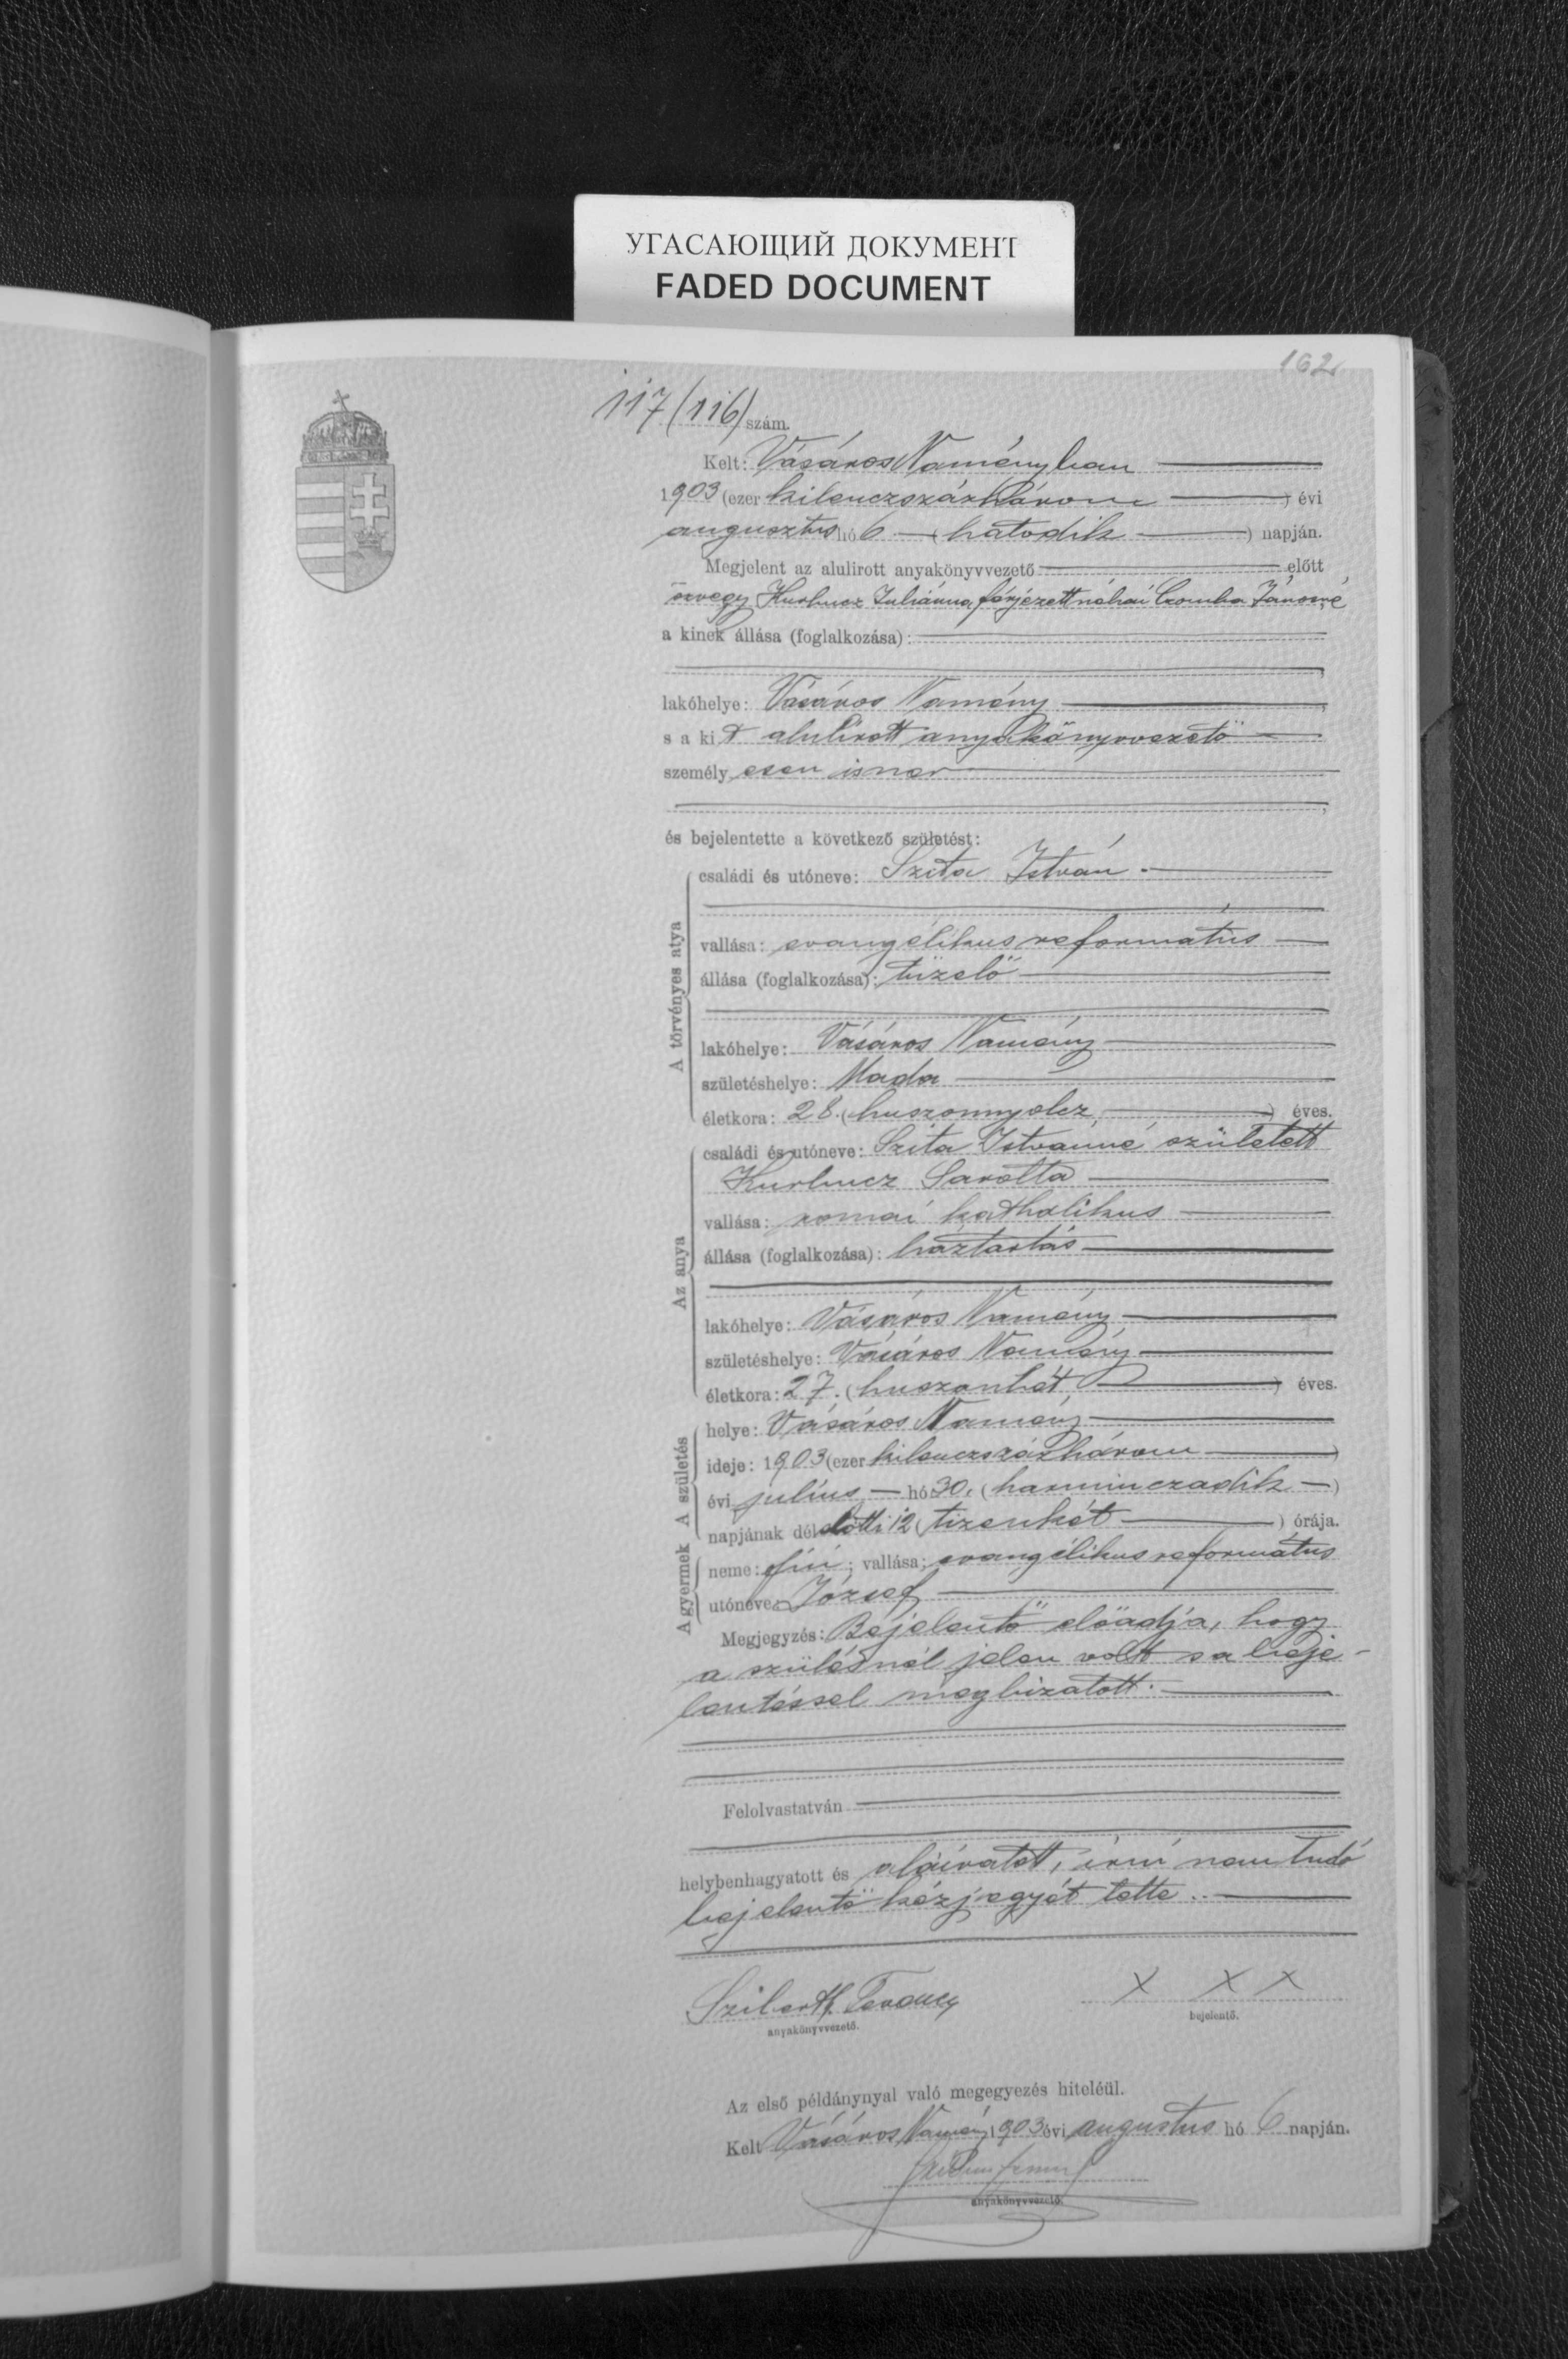 УГАСАЮЩИЙ ДОКУМЕНТ
FADED DOCUMENT
162
117 (116) szám.
Kelt: Vásáros Naményban
1903 (ezer kilenczszázhárom) évi
augusztus hó 6 (hatodik) napján.
Megjelent az alulirott anyakönyvvezető előtt
özvegy Kurhucz Juliánna, férjezett néhai Czomba Jánosné
a kinek állása (foglalkozása):
lakóhelye: Vásáros Namény
s a kit alulirott anyakönyvvezető
személyesen ismer
és bejelentette a következő születést:
A törvényes atya
családi és utóneve: Szita István
vallása: evangélikus református
állása (foglalkozása): tüzelő
lakóhelye: Vásáros Namény
születéshelye: Mada
életkora: 28. (huszonnyolcz) éves.
Az anya
családi és utóneve: Szita Istvanné született
Kurhucz Sarolta
vallása: romai katholikus
állása (foglalkozása): háztartás
lakóhelye: Vásáros Namény
születéshelye: Vásáros Namény
életkora: 27. (huszonhét) éves.
A születés
helye: Vásáros Namény
ideje: 1903 (ezer kilenczszázhárom)
évi julius hó 30. (harminczadik)
napjának délelőtti 12 (tizenkét) órája.
A gyermek
neme: fiú; vallása: evangélikus református
utóneve: József
Megjegyzés: Bejelentő előadja, hogy
a szülésnél jelen volt s a beje-
lentéssel megbizatott.
Felolvastatván
helybenhagyatott és aláiratott, irni nem tudó
bejelentő kézjegyét tette.
Szilerth Ferencz X X X
anyakönyvvezető. bejelentő.
Az első példánynyal való megegyezés hiteléül.
Kelt Vásáros Namény 1903 évi augustus hó 6 napján.
anyakönyvvezető.